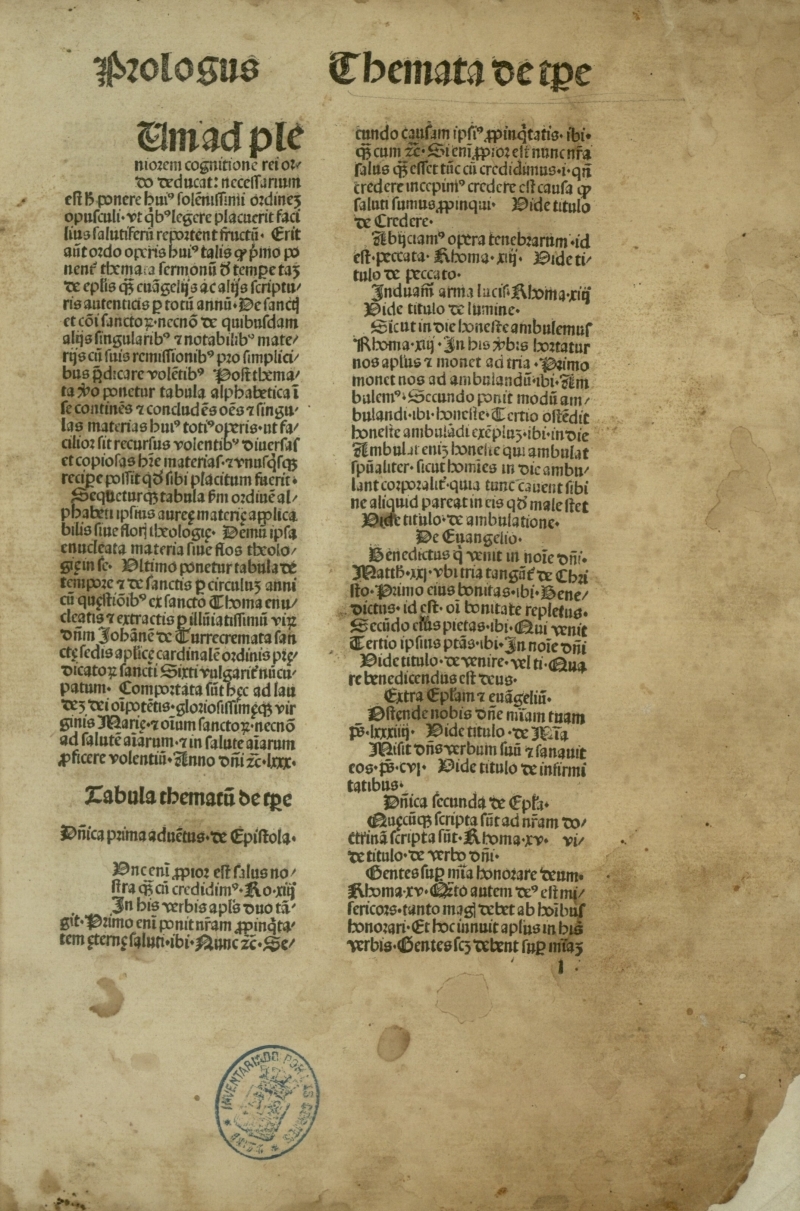 Prologus
Themata de tp̄e
Um ad ple
niorem cognitionē rei or⸗
do deducat: necessarium
est ħ ponere huiꝰ solēnissimi ordinē
opusculi. vt qͥbꝰ legere placuerit faci
lius salutiferū reportent fructū. Erit
aūt ordo operis huiꝰ talis ꝙ pͥmo po
nent᷑ themata sermonū d̓ tempe taꝫ
de ep̄lis qꝫ euāgelijs ac alijs scriptu⸗
ris autenticis ꝑ totū annū. De sanctꝭ
et cōi sanctoꝝ. necnō de quibusdam
alijs singularibꝰ ⁊ notabilibꝰ mate⸗
rijs cū suis remissionibꝰ pro simplici⸗
bus p̄dicare volētibꝰ Post thema⸗
ta ꝟo ponetur tabula alphabetica ī
se continēs ⁊ concludēs oēs ⁊ singu⸗
las materias huiꝰ totiꝰ operis. ut fa⸗
cilior sit recursus volentibꝰ diuersas
et copiosas hr̄e materias. ⁊ vnusqͥsqꝫ
recipe possit qd̓ sibi placitum fuerit.
Sequeturqꝫ tabula ẜm ordinē al⸗
phabeti ipsius auree materię applica
bilis siue florꝭ theologię. Demū ipsa
enucleata materia siue flos theolo⸗
gię in se. Vltimo ponetur tabula de
tempore ⁊ de sanctis ꝑ circulūꝫ anni
cū quęstiōibꝰ ex sancto Thoma enu⸗
cleatis ⁊ extractis ꝑ illuīatissimū virꝝ
dn̄m Johānē de Turrecremata san
ctę sedis aplicę cardinalē ordinis prę⸗
dicatoꝝ sancti Sixti vulgarit᷑ nūcu⸗
patum. Comportata sūt hęc ad lau
deꝫ dei oīpotētis. gloriosissimęqꝫ vir
ginis Marię. ⁊ oīum sanctoꝝ. necnō
ad salutē aīarum. ⁊ in salute aīarum
ꝓficere volentiū. Anno dn̄i ꝛc̄. lxxx.
Tabula thematū de tp̄e
Dn̄ica prima aduētus. de Epistola.
Vnc enī ꝓpior est salus no⸗
stra qꝫ cū credidimꝰ. Ro. xiij
In his verbis apl̄s duo tā⸗
git. Primo enī ponit nr̄am ꝓpinqͥta⸗
tem ęternę saluti. ibi. Nunc ꝛc̄. Se⸗
cundo causam ipsiꝰ ꝓpinqͥtatis. ibi.
qꝫ cum ꝛc̄. Si enī ꝓpior est nunc nr̄a
salus qꝫ esset tūc cū credidimus. i. qn̄
credere incepimꝰ credere est causa ꝙ
saluti sumus ꝓpinqui. Vide titulo
de Credere.
Abijciamꝰ opera tenebrarum. id
est. peccata. Rhoma. xiij. Vide ti⸗
tulo de peccato.
Induam̄ arma lucis. Rhoma. xiij
Vide titulo de lumine.
Sicut in die honeste ambulemus
Rhoma. xiij. In his ꝟbis hortatur
nos aplus ⁊ monet ad tria. Primo
monet nos ad ambulandū. ibi. Am
bulemꝰ. Secundo ponit modū am⸗
bulandi. ibi. honeste. Tertio ostēdit
honeste ambulādi exēpluꝫ. ibi. in die
Ambulat eniꝫ honeste qui ambulat
spūaliter. sicut homīes in die ambu⸗
lant corporalit᷑. quia tunc cauent sibi
ne aliquid pareat in eis qd̓ male stet
Vide titulo. de ambulatione.
De Euangelio.
Benedictus q̇ venit in noīe dn̄i.
Matth. xxj. vbi tria tangūt᷑ de Chri
sto. Primo eius bonitas. ibi. Bene⸗
dictus. id est. oī bonitate repletus.
Secūdo eius pietas. ibi. Qui venit
Tertio ipsius ptās. ibi. In noīe dn̄i
Vide titulo. de venire. vel ti. Qua
re benedicendus est deus.
Extra Epl̄am ⁊ euāgeliū.
Ostende nobis dn̄e mīam tuam
ps̄. lxxxiiij. Vide titulo. de Mīa
Misit dn̄s verbum suū ⁊ sanauit
eos. ps̄. cvj. Vide titulo de infirmi
tatibus.
Dn̄ica secunda de Epl̄a.
Quęcūqꝫ scripta sūt ad nr̄am do⸗
ctrinā scripta sūt. Rhoma. xv. vi⸗
de titulo. de verbo dn̄i.
Gentes suꝑ mīa honorare deum.
Rhoma. xv. Qͣto autem deꝰ est mi⸗
sericors. tanto magꝭ debet ab hoībus
honorari. Et hoc innuit aplus in his
verbis. Gentes scꝫ debent suꝑ mīaꝫ
1
INVENTARIADO POR LAS CORTES